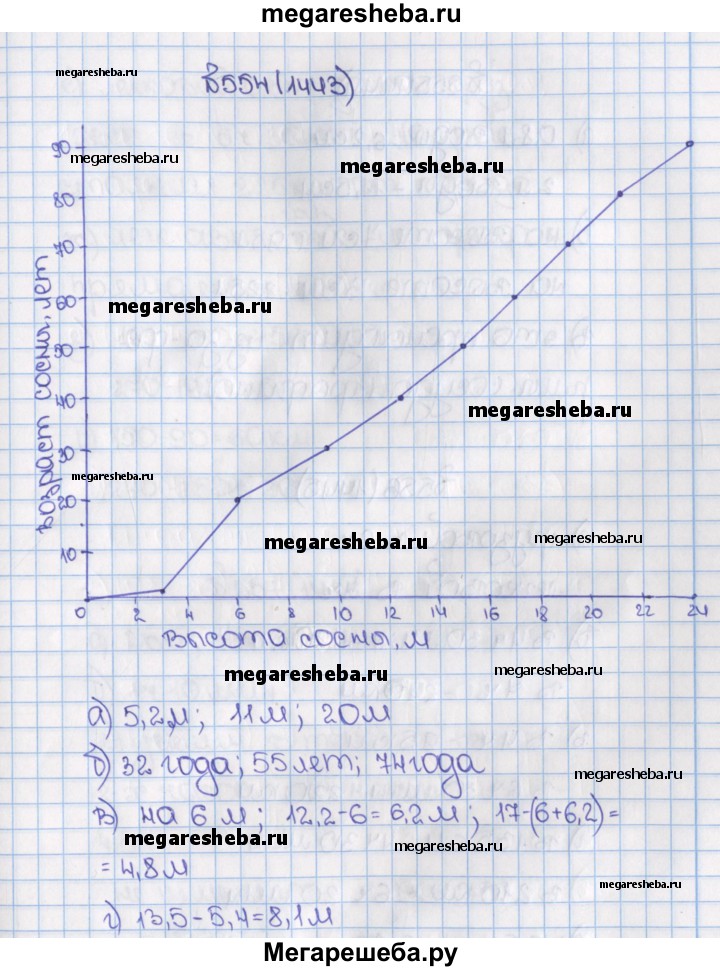 megaresheba.ru
megaresheba.ru
В554(1443)
90
megaresheba.ru
megaresheba.ru
80
70
60
megaresheba.ru
50
40
megaresheba.ru
30
megaresheba.ru
20
megaresheba.ru
megaresheba.ru
10
возраст сосны, лет
0 2 4 6 8 10 12 14 16 18 20 22 24
высота сосны, м
megaresheba.ru
megaresheba.ru
а) 5,2м; 11м; 20м
б) 32 года; 55 лет; 74 года
megaresheba.ru
в) на 6 м; 12,2-6=6,2м; 17-(6+6,2)=
megaresheba.ru
megaresheba.ru
=4,8м
megaresheba.ru
г) 13,5-5,4=8,1м
Мегарешеба.ру